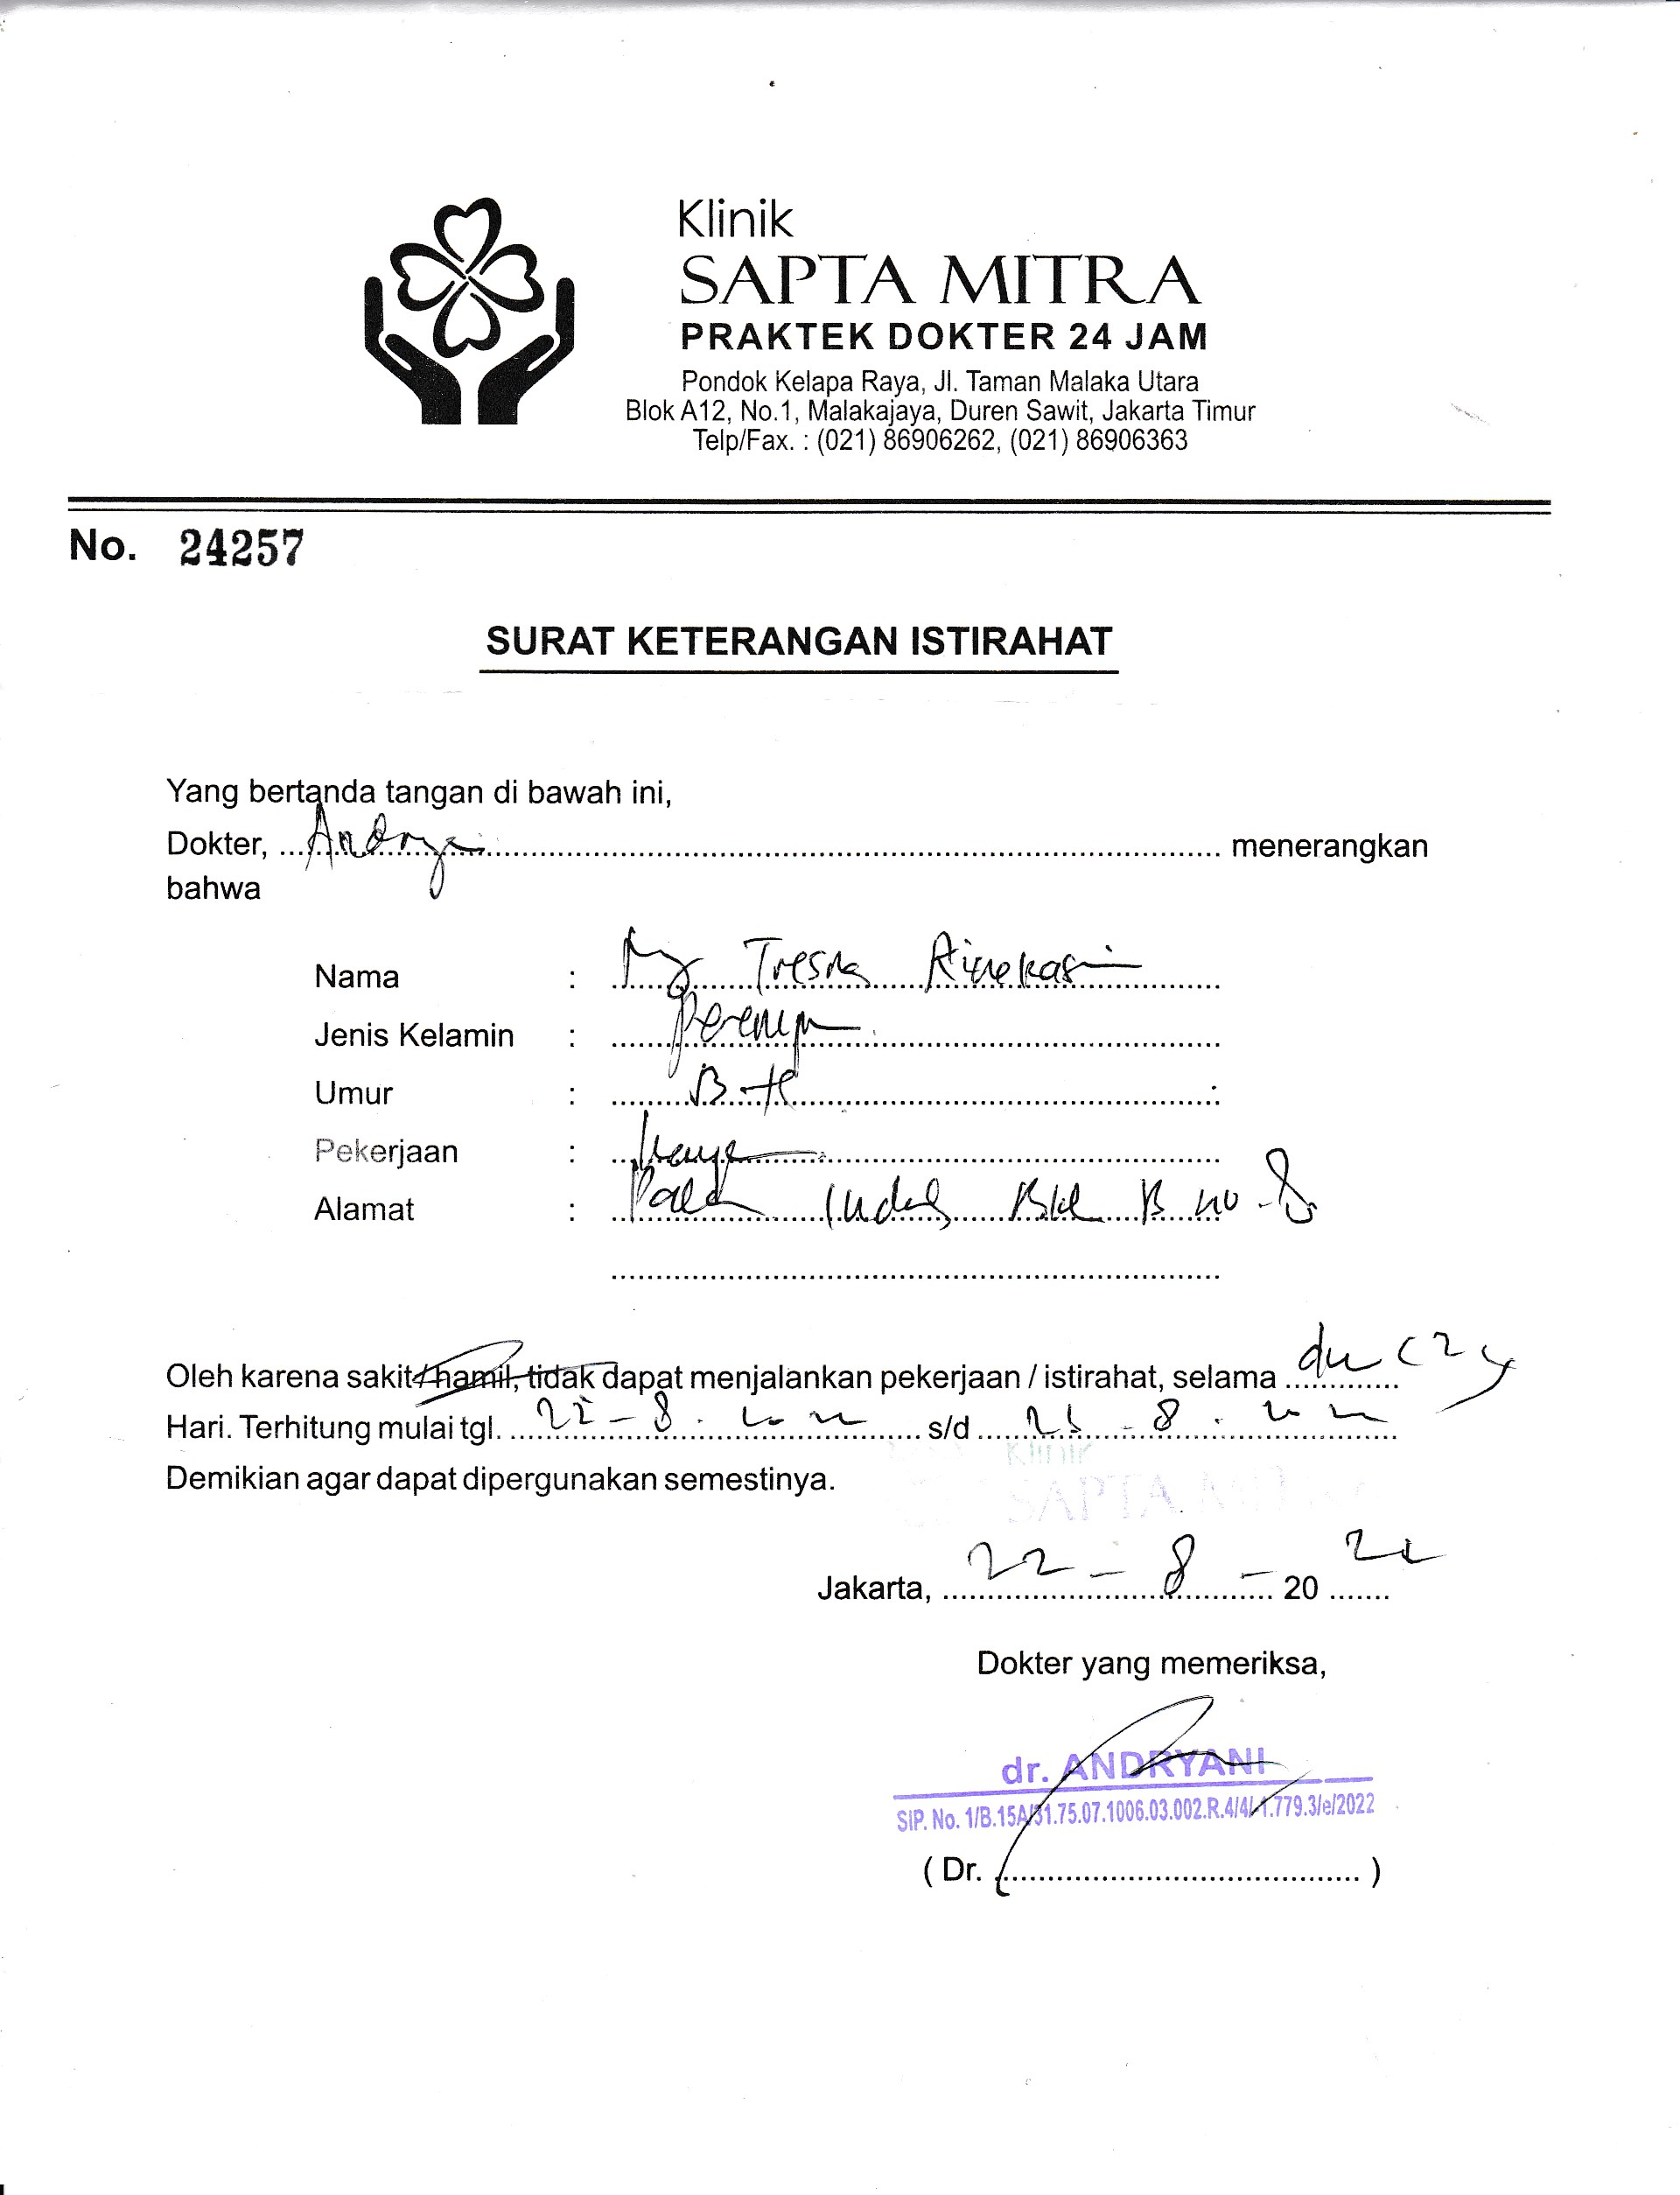 Klinik
SAPTA MITRA
PRAKTEK DOKTER 24 JAM
Pondok Kelapa Raya, Jl. Taman Malaka Utara
Blok A12, No.1, Malakajaya, Duren Sawit, Jakarta Timur
Telp/Fax. : (021) 86906262, (021) 86906363
No. 24257
SURAT KETERANGAN ISTIRAHAT
Yang bertanda tangan di bawah ini,
Dokter, ... menerangkan
bahwa
Nama : Tresna
Jenis Kelamin :
Umur :
Pekerjaan :
Alamat : Indah Blok B no. 8
Oleh karena sakit / hamil, tidak dapat menjalankan pekerjaan / istirahat, selama ...
Hari. Terhitung mulai tgl. 22 - 8 - 2022 s/d 23 - 8 - 2022
Demikian agar dapat dipergunakan semestinya.
Klinik
SAPTA MITRA
Jakarta, 22 - 8 - 20 22
Dokter yang memeriksa,
dr. ANDRYANI
SIP. No. 1/B.15A/31.75.07.1006.03.002.R.4/4/-1.779.3/e/2022
( Dr. ... )